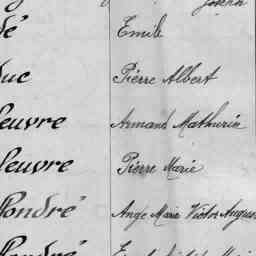 Joseph
dé Emile
duc Pierre Albert
leuvre Armand Mathurin
leuvre Pierre Marie
Hondré Ange Marie Victor Augus
Hondré